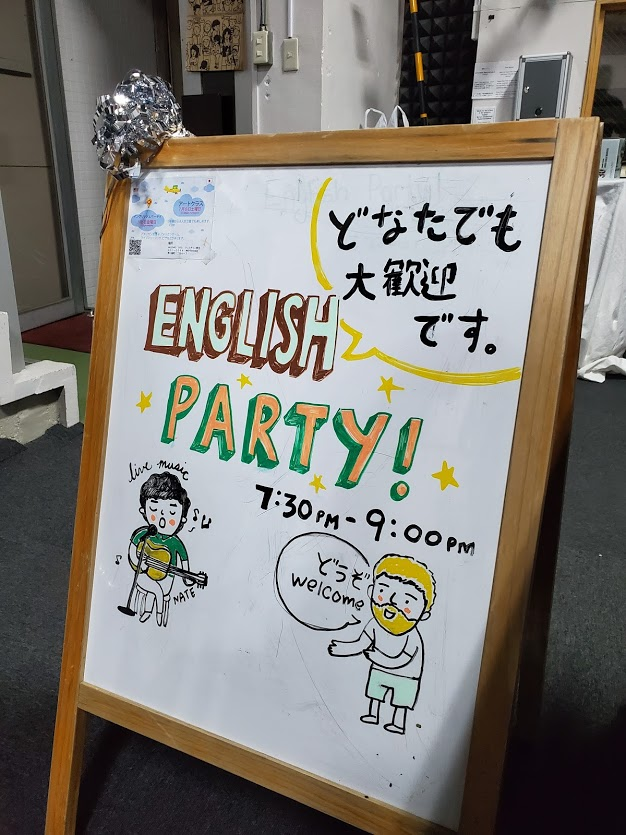 どなたでも
大歓迎
です。
ENGLISH
PARTY!
7:30PM - 9:00PM
live music
NATE
どうぞ
welcome
アートクラス